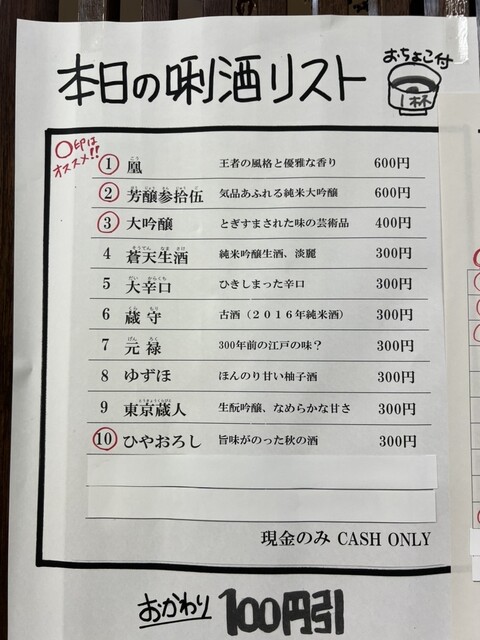 本日の唎酒リスト
おちょこ付
1杯
○印は
オススメ!!
1 凰 こう 王者の風格と優雅な香り 600円
2 芳醸参拾伍 気品あふれる純米大吟醸 600円
3 大吟醸 とぎすまされた味の芸術品 400円
4 蒼天生酒 そうてん なま さけ 純米吟醸生酒、淡麗 300円
5 大辛口 だい からくち ひきしまった辛口 300円
6 蔵守 くら もり 古酒(2016年純米酒) 300円
7 元禄 げん ろく 300年前の江戸の味? 300円
8 ゆずほ ほんのり甘い柚子酒 300円
9 東京蔵人 とうきょうくらびと 生酛吟醸、なめらかな甘さ 300円
10 ひやおろし 旨味がのった秋の酒 300円
現金のみ CASH ONLY
おかわり 100円引